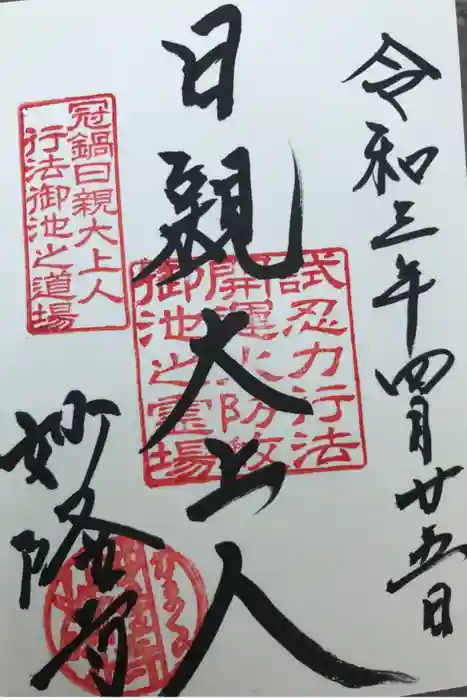 令和三年四月廿五日
日親大上人
冠鍋日親大上人
行法御池之道場
試忍力行法
開運火防攸
御池之霊場
妙隆寺